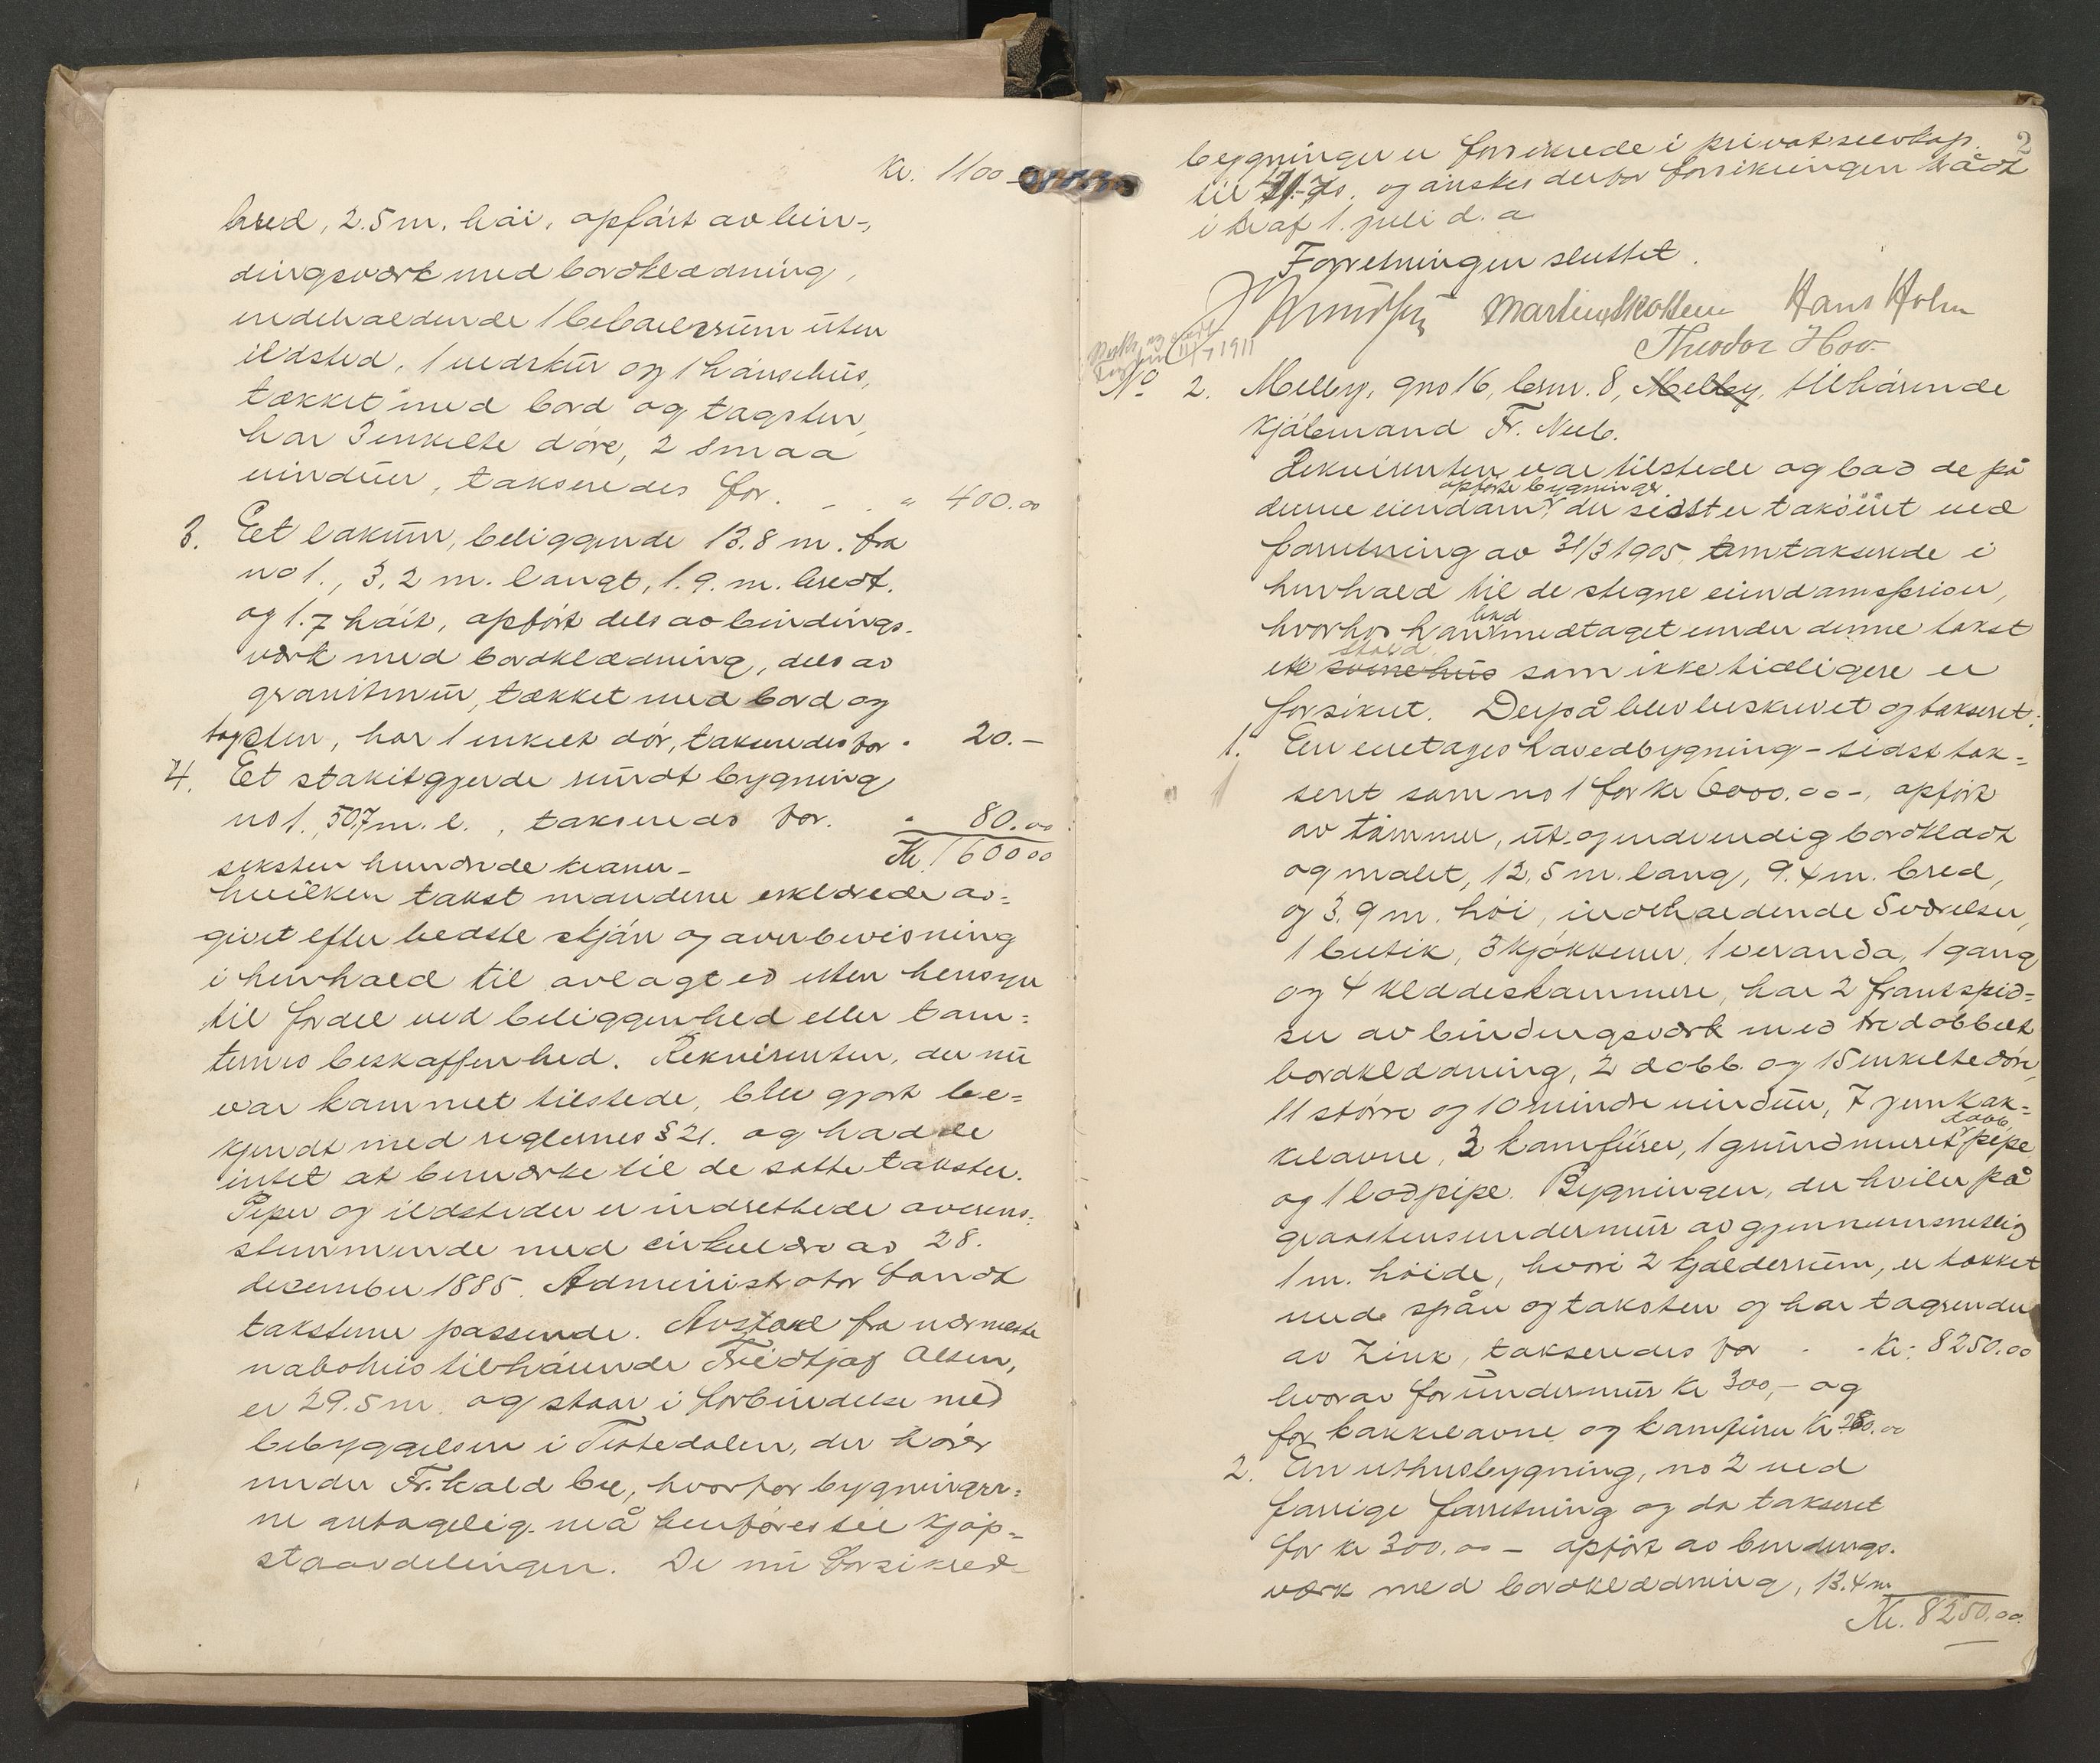 kr. 1100 -
bred, 2.5 m. høi, opført av bin-
dingsværk med bordklædning,
indeholdende 1 beboelsrum uten
ildsted, 1 vedskur og 1 hønsehus,
tækket med bord og tagsten,
har 3 enkelte døre, 2 smaa
vinduer, takseredes for. - . " 400.00
3. Eet lokum, beliggende 13.8 m. fra
no 1., 3,2 m. langt, 1.9. m. bredt.
og 1.7 høit, opført dels av bindings-
værk med bordklædning, dels av
granitmur, tækket med bord og
tagsten, har 1 enkelt dør, takseredes for . 20.-
4. Et stakitgjerde rundt bygning
no 1., 50,7 m. l., takseredes for. " 80.00
seksten hundrede kroner - Kr. 1600 00
hvilken takst mændene erklærede av=
givet efter bedste skjøn og overbevisning
i henhold til avlagt ed uten hensyn
til fordel ved beliggenhed eller tom=
ternes beskaffenhed. Rekvirenten, der nu
var kommet tilstede, blev gjort be=
kjendt med reglernes § 21. og hadde
intet at bemærke til de satte takster.
Piper og ildsteder er indrettede overens=
stemmende med cirkulære av 28.
dezember 1885. Administrator fandt
taksterne passende. Avstand fra nærmeste
nabohus tilhørende Fridtjof Olsen,
er 29.5 m. og staar i forbindelse med
bebyggelsen i Tistedalen, der hører
under Fr.hald by, hvorfor bygninger=
ne antagelig må henføres til kjøp=
stadavdelingen. De nu forsikred
2
bygninger er forsikrede i privat selskap
til ds. og ønskes derfor forsikringen trådt
i kraf 1. juli d. a
Forretningen sluttet.
J Knudsen Martin Skotten Hans Holm
Theodor Hov.
1911
No 2. Melby, gno 16, brnr. 8, Melby, tilhørende
kjøbmand Fr. Neeb.
Rekvirenten var tilstede og bad de på
opførte bygninger
denne eiendom der sidst er taksert ved
forretning av 31/3 1905, omtaksende i
henhold til de stegne eiendomspriser,
bad
hvorhos han medtaget under denne takst
stald
et svinehus som ikke tidligere er
forsikret. Derpå blev beskrevet og taksert:
1. En enetages hovedbygning - sidst tak=
sert som no 1 for kr 6000.00 -, opført
av tømmer, ut- og indvendig bordklædt
og malet, 12,5 m. lang, 9.4 m. bred,
og 3.9 m. høi, indeholdende 5 værelser,
1 butik, 3 kjøkkener, 1 veranda, 1 gang
og 4 klædeskammere, har 2 frontspid=
ser av bindingsværk med tredobbelt
bordklædning, 2 dobb. og 15 enkelte døre,
11 større og 10 mindre vinduer, 7 jernkak=
dobb.
kelovne, 3 komfürer, 1 grundmuret pipe
og 1 lodpipe. Bygningen, der hviler på
gråstensundermur av gjennemsnitlig
1 m. høide, hvori 2 kjælderrum, er tækket
med spån og taksten og har tagrender
av Zink, takseredes for - - kr. 8250.00
hvorav for undermur kr 300,- og
for kakkelovne og komfürer kr 280.00
2. En uthusbygning, no 2 ved
forrige forretning og da taksert
for kr 300.00 - opført av bindings-
værk med bordklædning, 13.4 m.
Kr. 8250.00